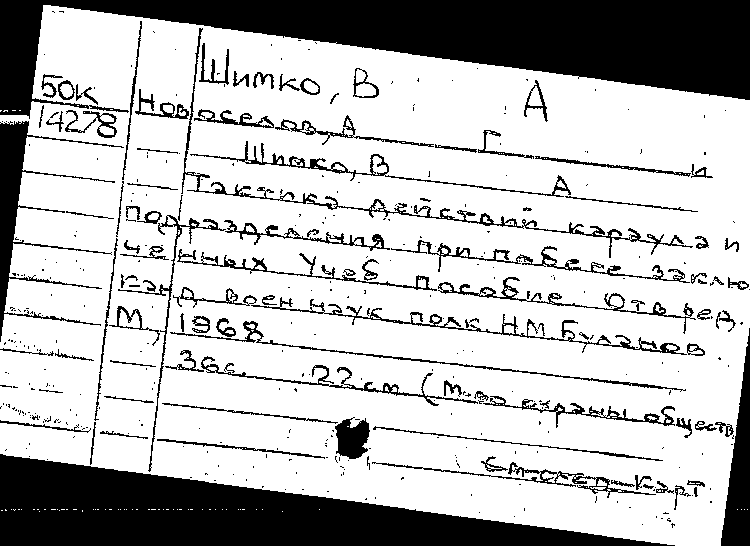 Шимко, В А
50К
14278
Новоселов, А Г и
Шимко, В А
Тактика действий караула и
подразделения при побеге заклю
ченных Учеб. пособие. Отв ред.
канд воен наук полк. Н.М. Буланов.
М, 1968.
36с. 22 см (М-во охраны обществ
См. след. карт.